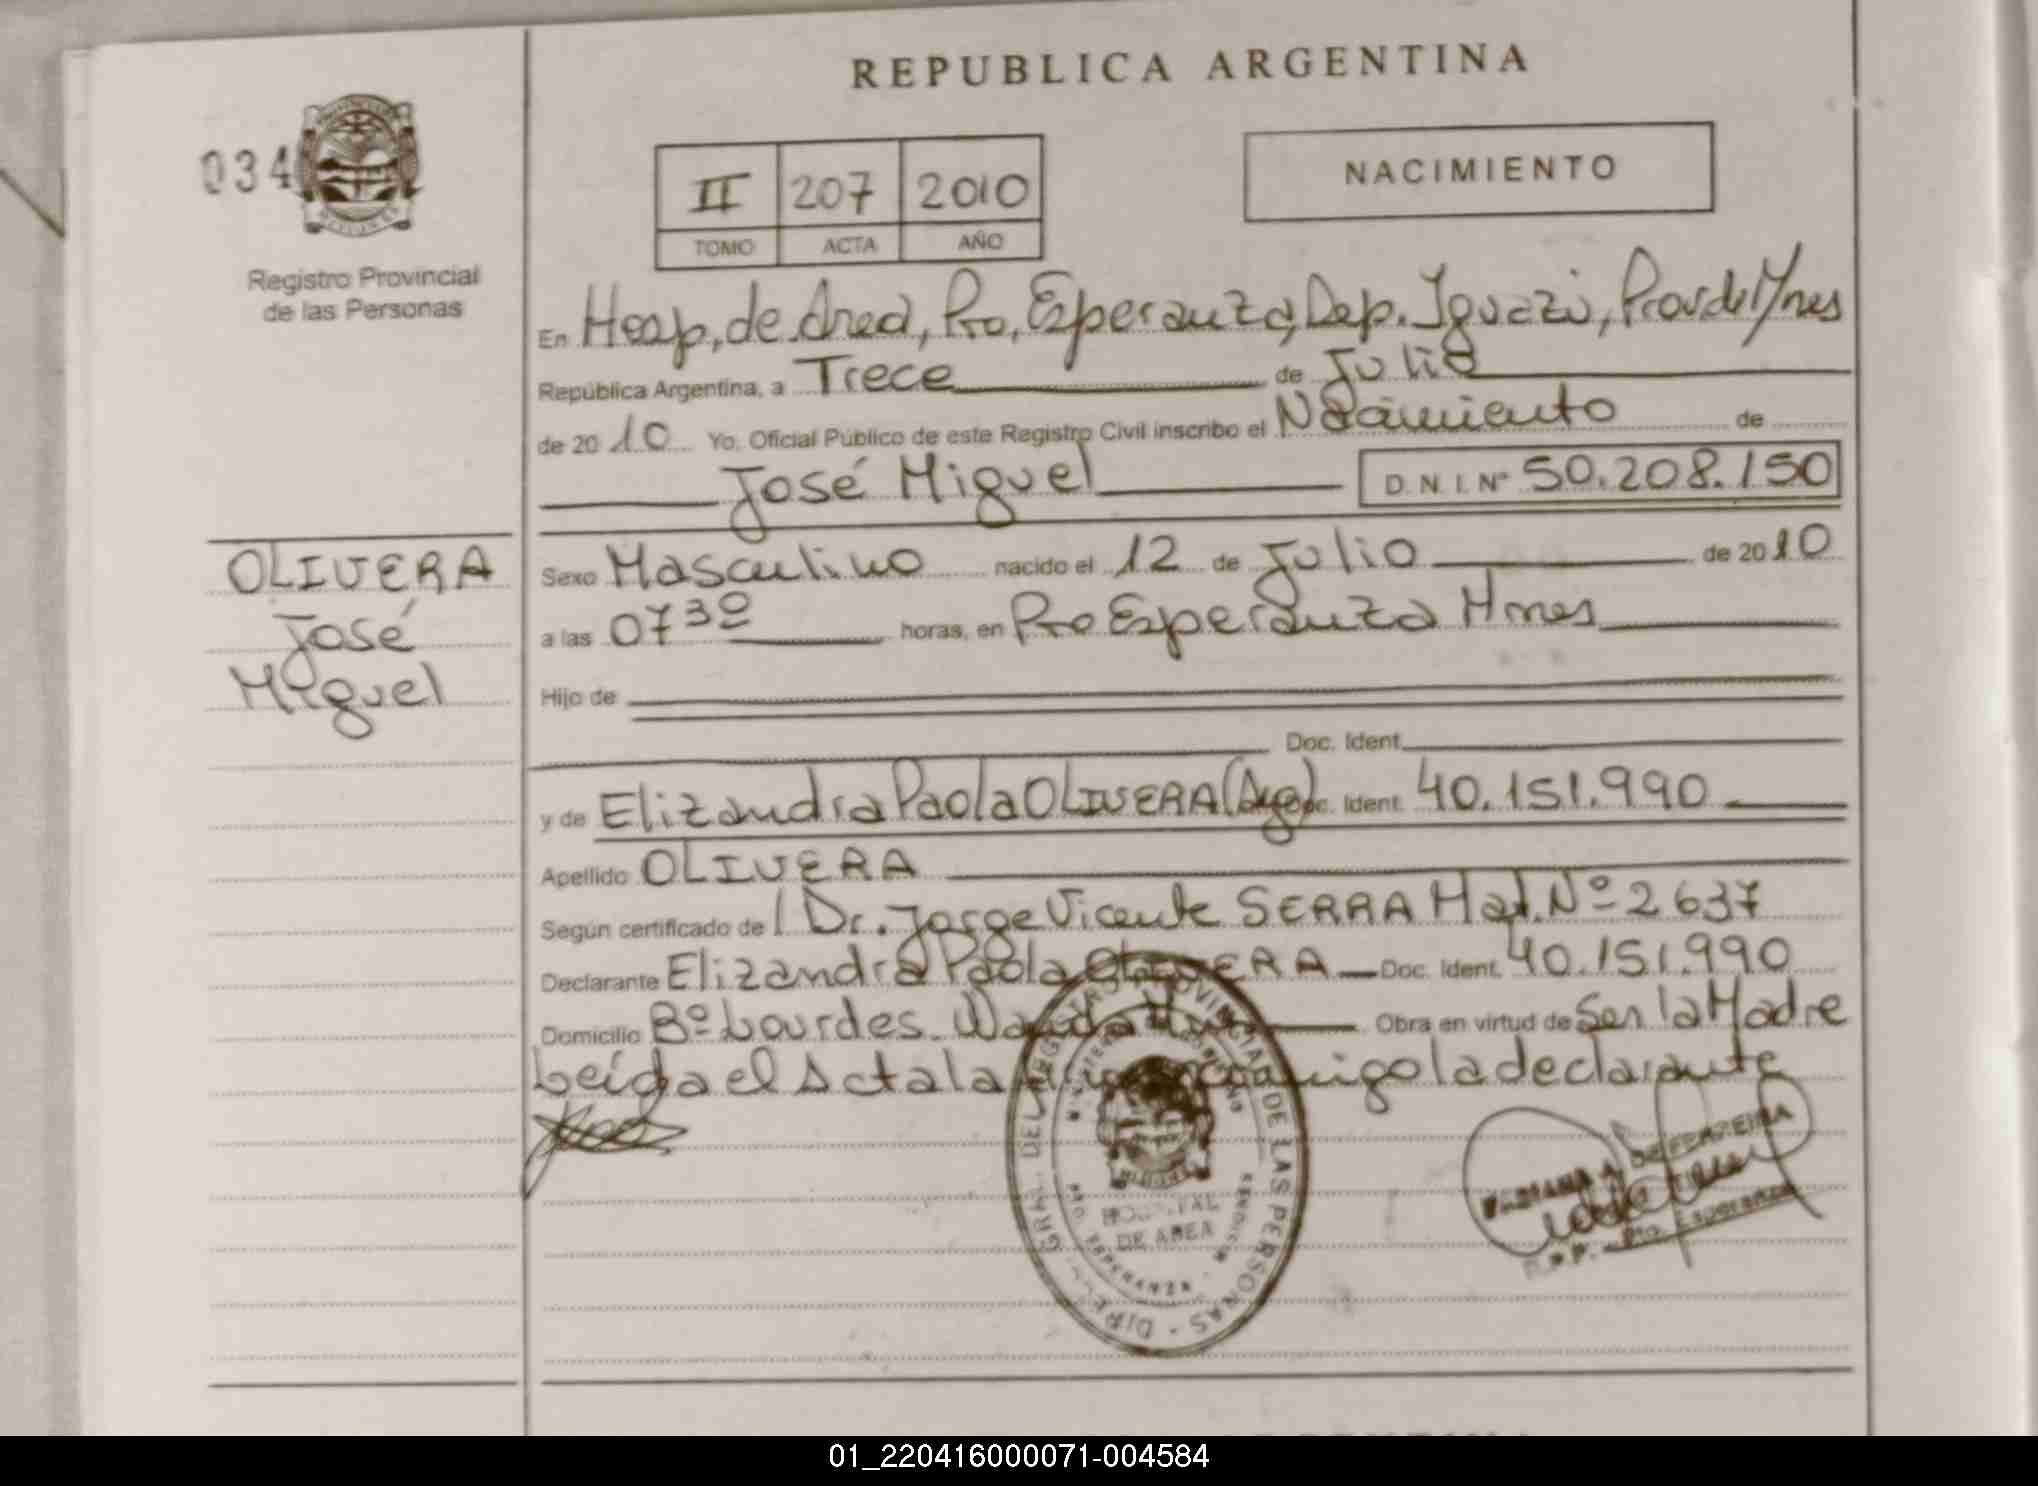 REPUBLICA ARGENTINA
034
Registro Provincial
de las Personas
II 207 2010
TOMO ACTA AÑO
NACIMIENTO
En Hosp, de Area, Pto, Esperanza, Dep. Iguazú, Prov de Mnes
República Argentina, a Trece de Julio
de 2010 Yo, Oficial Público de este Registro Civil inscribo el Nacimiento de
José Miguel D. N. I. Nº 50.208.150
OLIVERA
José
Miguel
Sexo Masculino nacido el 12 de Julio de 2010
a las 07³⁰ horas, en Pto Esperanza Mnes
Hijo de
Doc. Ident.
y de Elizandra Paola OLIVERA (Arg) Doc. Ident. 40.151.990
Apellido OLIVERA
Según certificado de Dr. Jorge Vicente SERRA Mat. Nº 2637
Declarante Elizandra Paola OLIVERA Doc. Ident. 40.151.990
Domicilio Bº Lourdes. Wanda Obra en virtud de Ser la Madre
Leída el Acta la conmigo la declarante
DE FERREIRA
Pto. Esperanza
HOSPITAL
DE AREA
PTO. ESPERANZA
DIREC. GRAL. DEL REGISTRO PROVINCIAL DE LAS PERSONAS
01_220416000071-004584